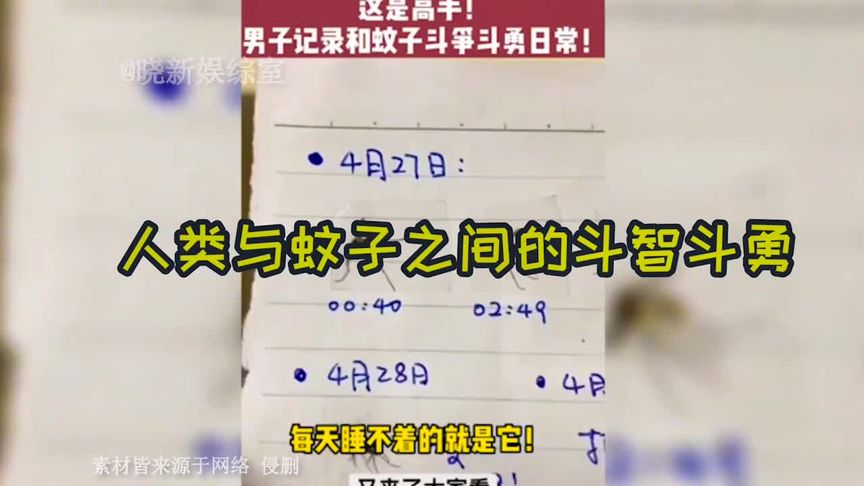 这是高手!
男子记录和蚊子斗争斗勇日常!
@晓新娱综室
4月27日:
人类与蚊子之间的斗智斗勇
00:40 02:49
4月28日 4月
每天睡不着的就是它!
素材皆来源于网络 侵删
又来了大家看